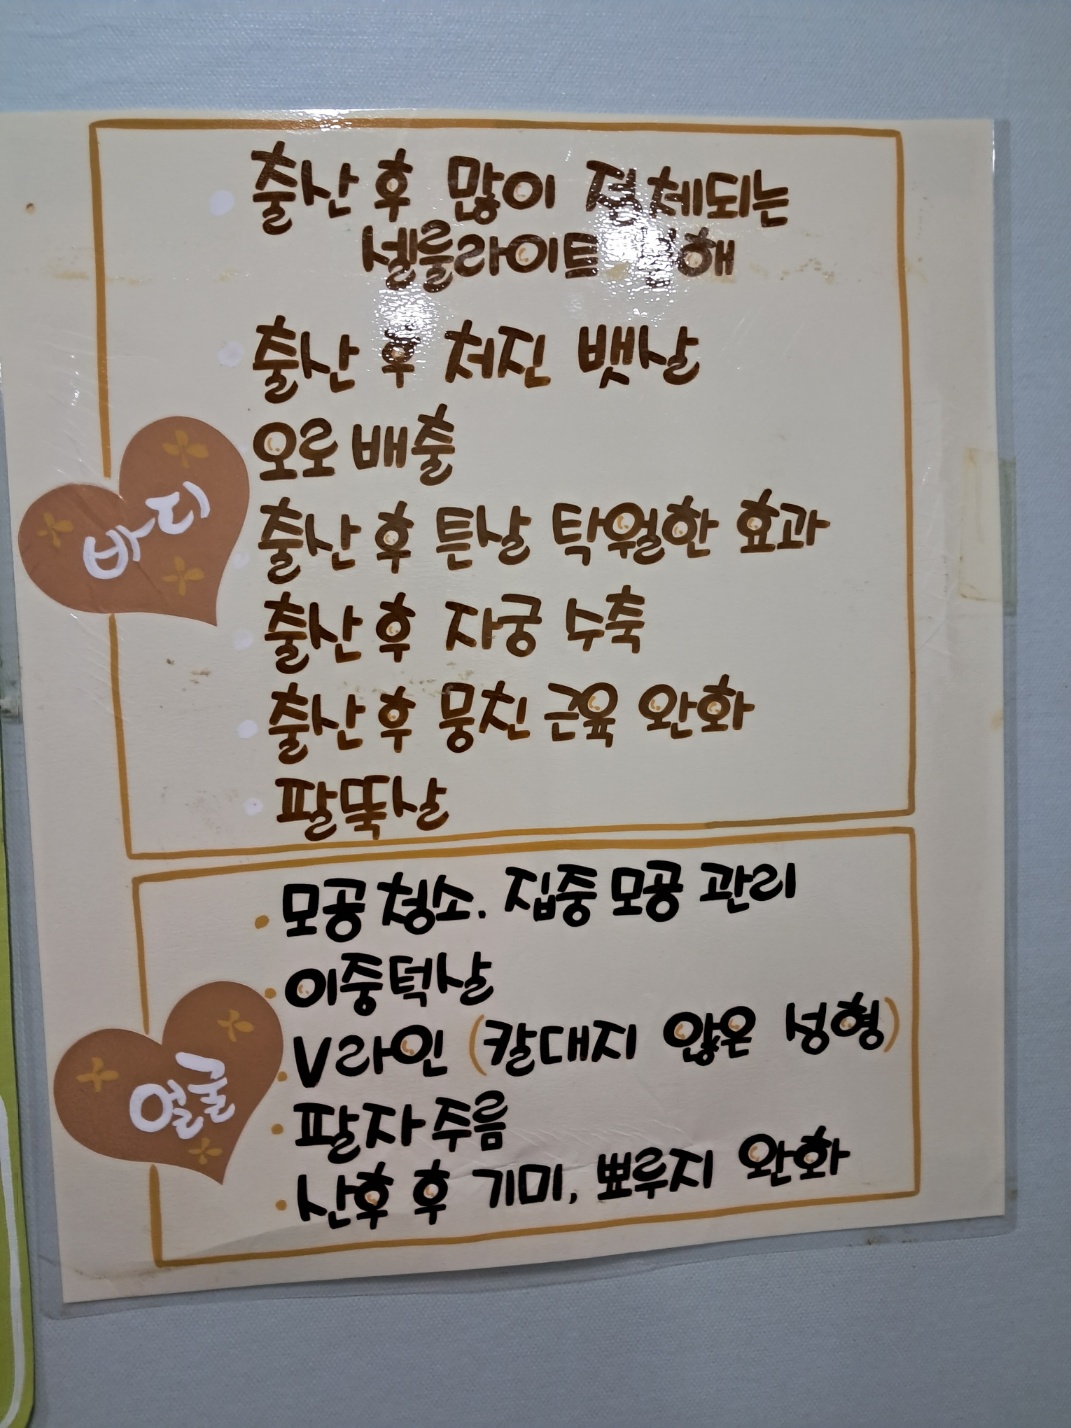 출산 후 많이 정체되는
셀룰라이트
출산 후 처진 뱃살
오로 배출
바디
출산 후 튼살 탁월한 효과
출산 후 자궁 수축
출산 후 뭉친 근육 완화
팔뚝살
모공 청소. 집중 모공 관리
이중턱살
V라인 (칼대지 않은 성형)
얼굴
팔자주름
산후 후 기미, 뾰루지 완화